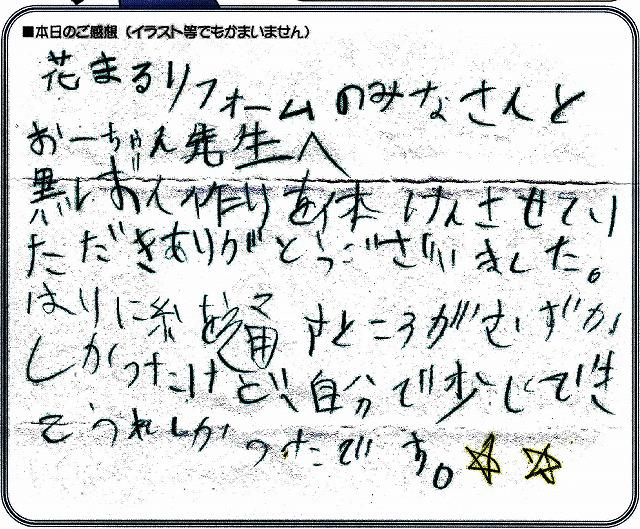 ■本日のご感想（イラスト等でもかまいません）
花まるリフォームのみなさんと
おーちゃん先生へ
黒ぼん作りを体けんさせてい
ただきありがとうございました。
はりに糸を通すところがむずか
しかったけど、自分で少しでき
てうれしかったです。☆☆